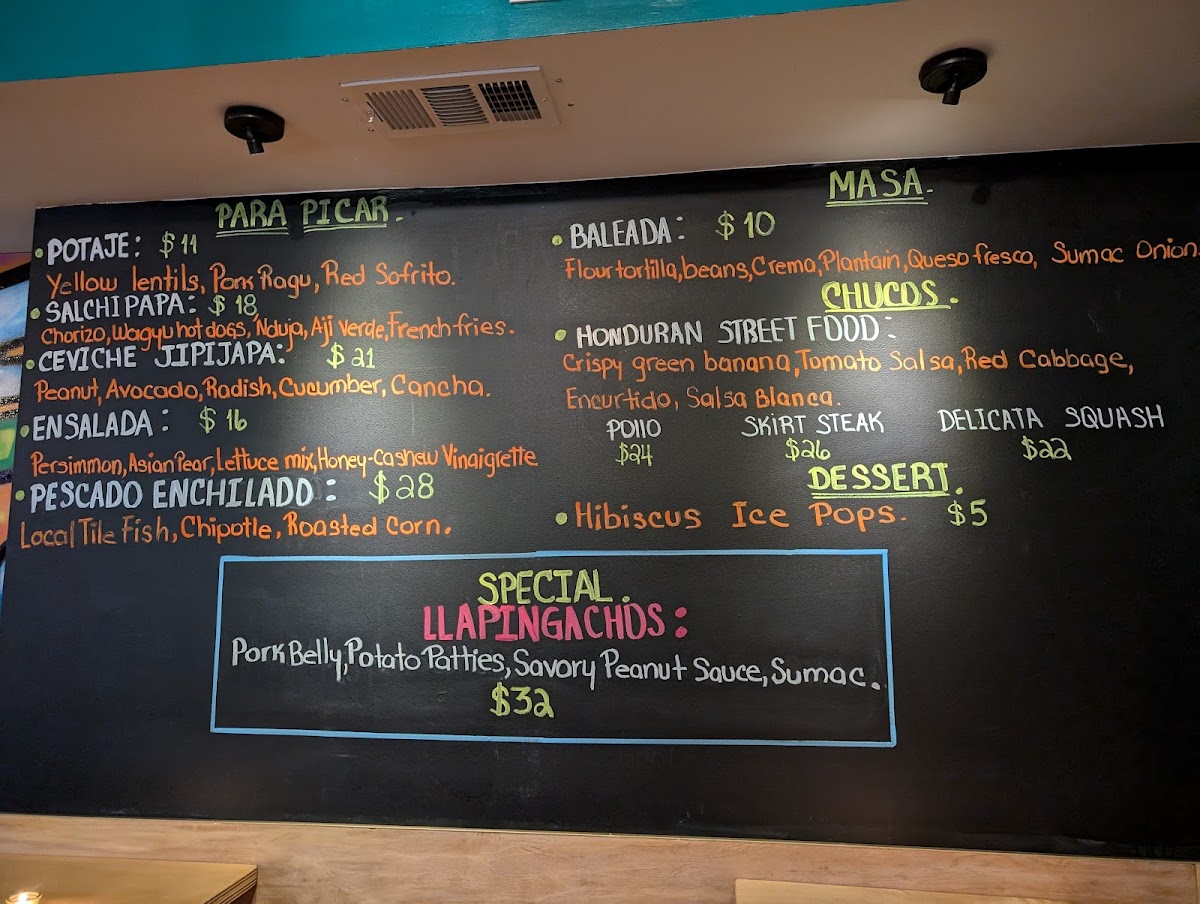 PARA PICAR.
• POTAJE: $11
Yellow lentils, Pork Ragu, Red Sofrito.
• SALCHIPAPA: $18
Chorizo, Wagyu hot dogs, 'Nduja, Aji verde, French fries.
• CEVICHE JIPIJAPA: $21
Peanut, Avocado, Radish, Cucumber, Cancha.
• ENSALADA: $16
Persimmon, Asian Pear, Lettuce mix, Honey-cashew Vinaigrette
• PESCADO ENCHILADO: $28
Local Tile Fish, Chipotle, Roasted Corn.
MASA.
• BALEADA: $10
Flour tortilla, beans, Crema, Plantain, Queso fresco, Sumac Onion.
CHUCOS.
• HONDURAN STREET FOOD:
Crispy green banana, Tomato Salsa, Red Cabbage,
Encurtido, Salsa Blanca.
POllO SKIRT STEAK DELICATA SQUASH
$24 $26 $22
DESSERT.
• Hibiscus Ice Pops. $5
SPECIAL.
LLAPINGACHOS:
Pork Belly, Potato Patties, Savory Peanut Sauce, Sumac.
$32